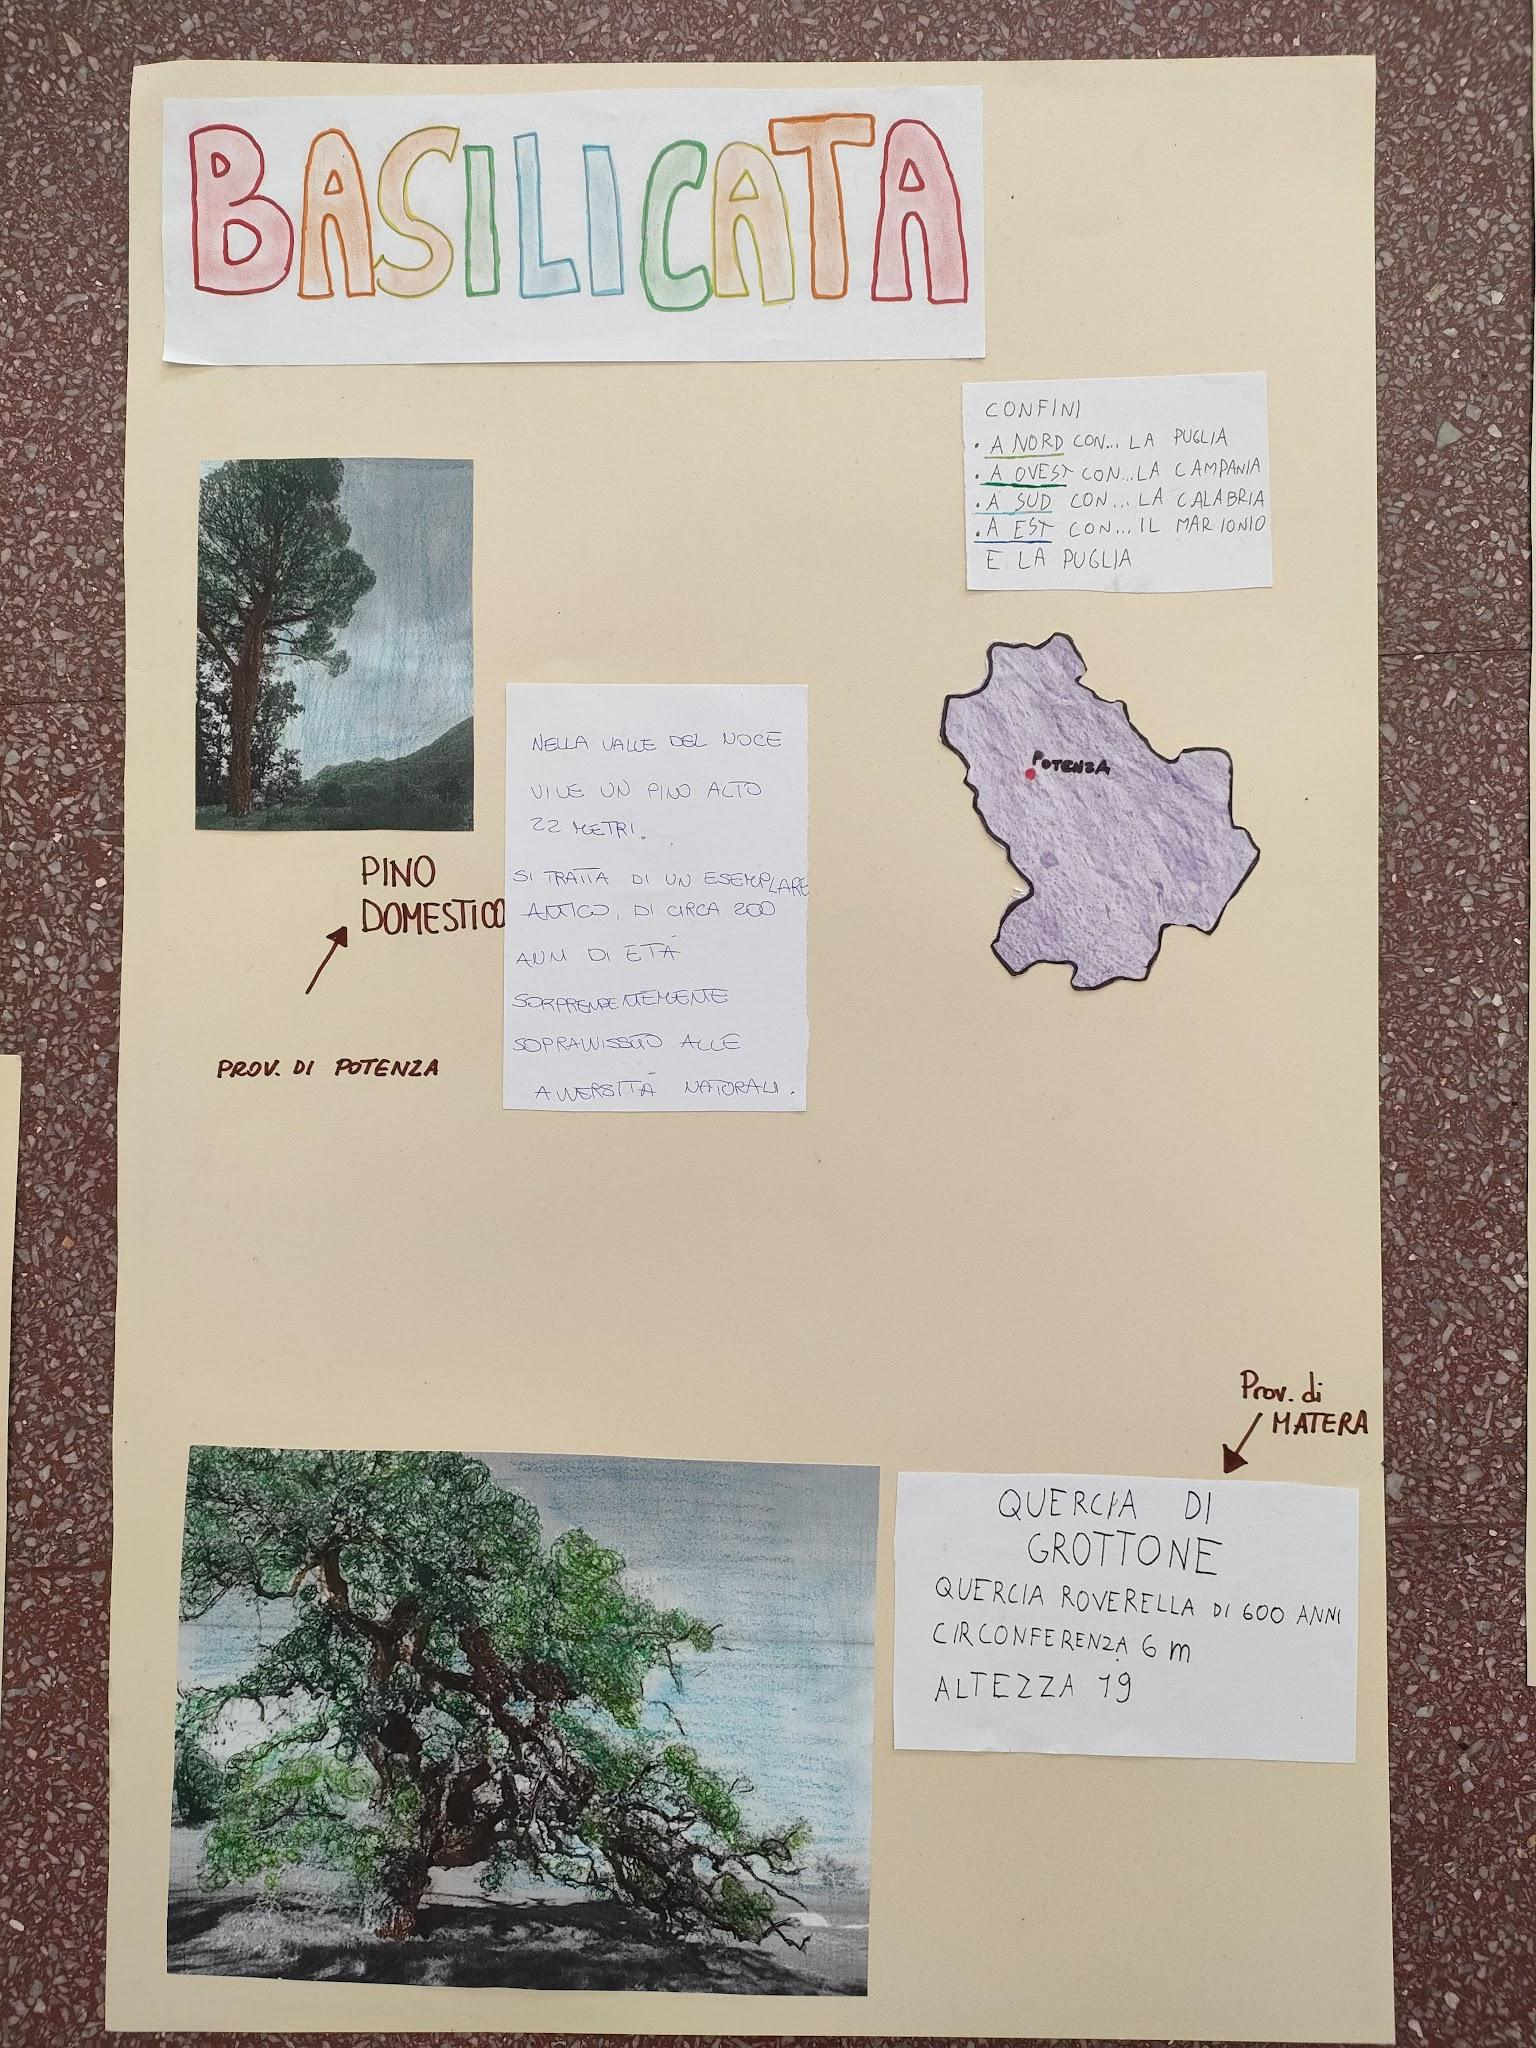 BASILICATA
CONFINI
• A NORD CON... LA PUGLIA
• A OVEST CON...LA CAMPANIA
• A SUD CON... LA CALABRIA
• A EST CON... IL MAR IONIO
E LA PUGLIA
POTENZA
PINO
DOMESTICO
PROV. DI POTENZA
NELLA VALLE DEL NOCE
VIVE UN PINO ALTO
22 METRI.
SI TRATTA DI UN ESEMPLARE
ANTICO, DI CIRCA 200
ANNI DI ETÁ
SORPRENDENTEMENTE
SOPRAVVISSUTO ALLE
AVVERSITÁ NATURALI.
Prov. di
MATERA
QUERCIA DI
GROTTONE
QUERCIA ROVERELLA DI 600 ANNI
CIRCONFERENZA 6 m
ALTEZZA 19